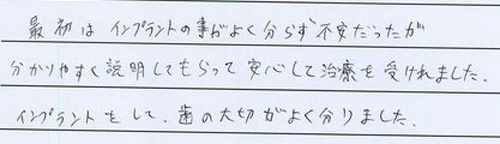 最初はインプラントの事がよく分らず不安だったが
分かりやすく説明してもらって安心して治療を受けれました.
インプラントをして、歯の大切がよく分りました.